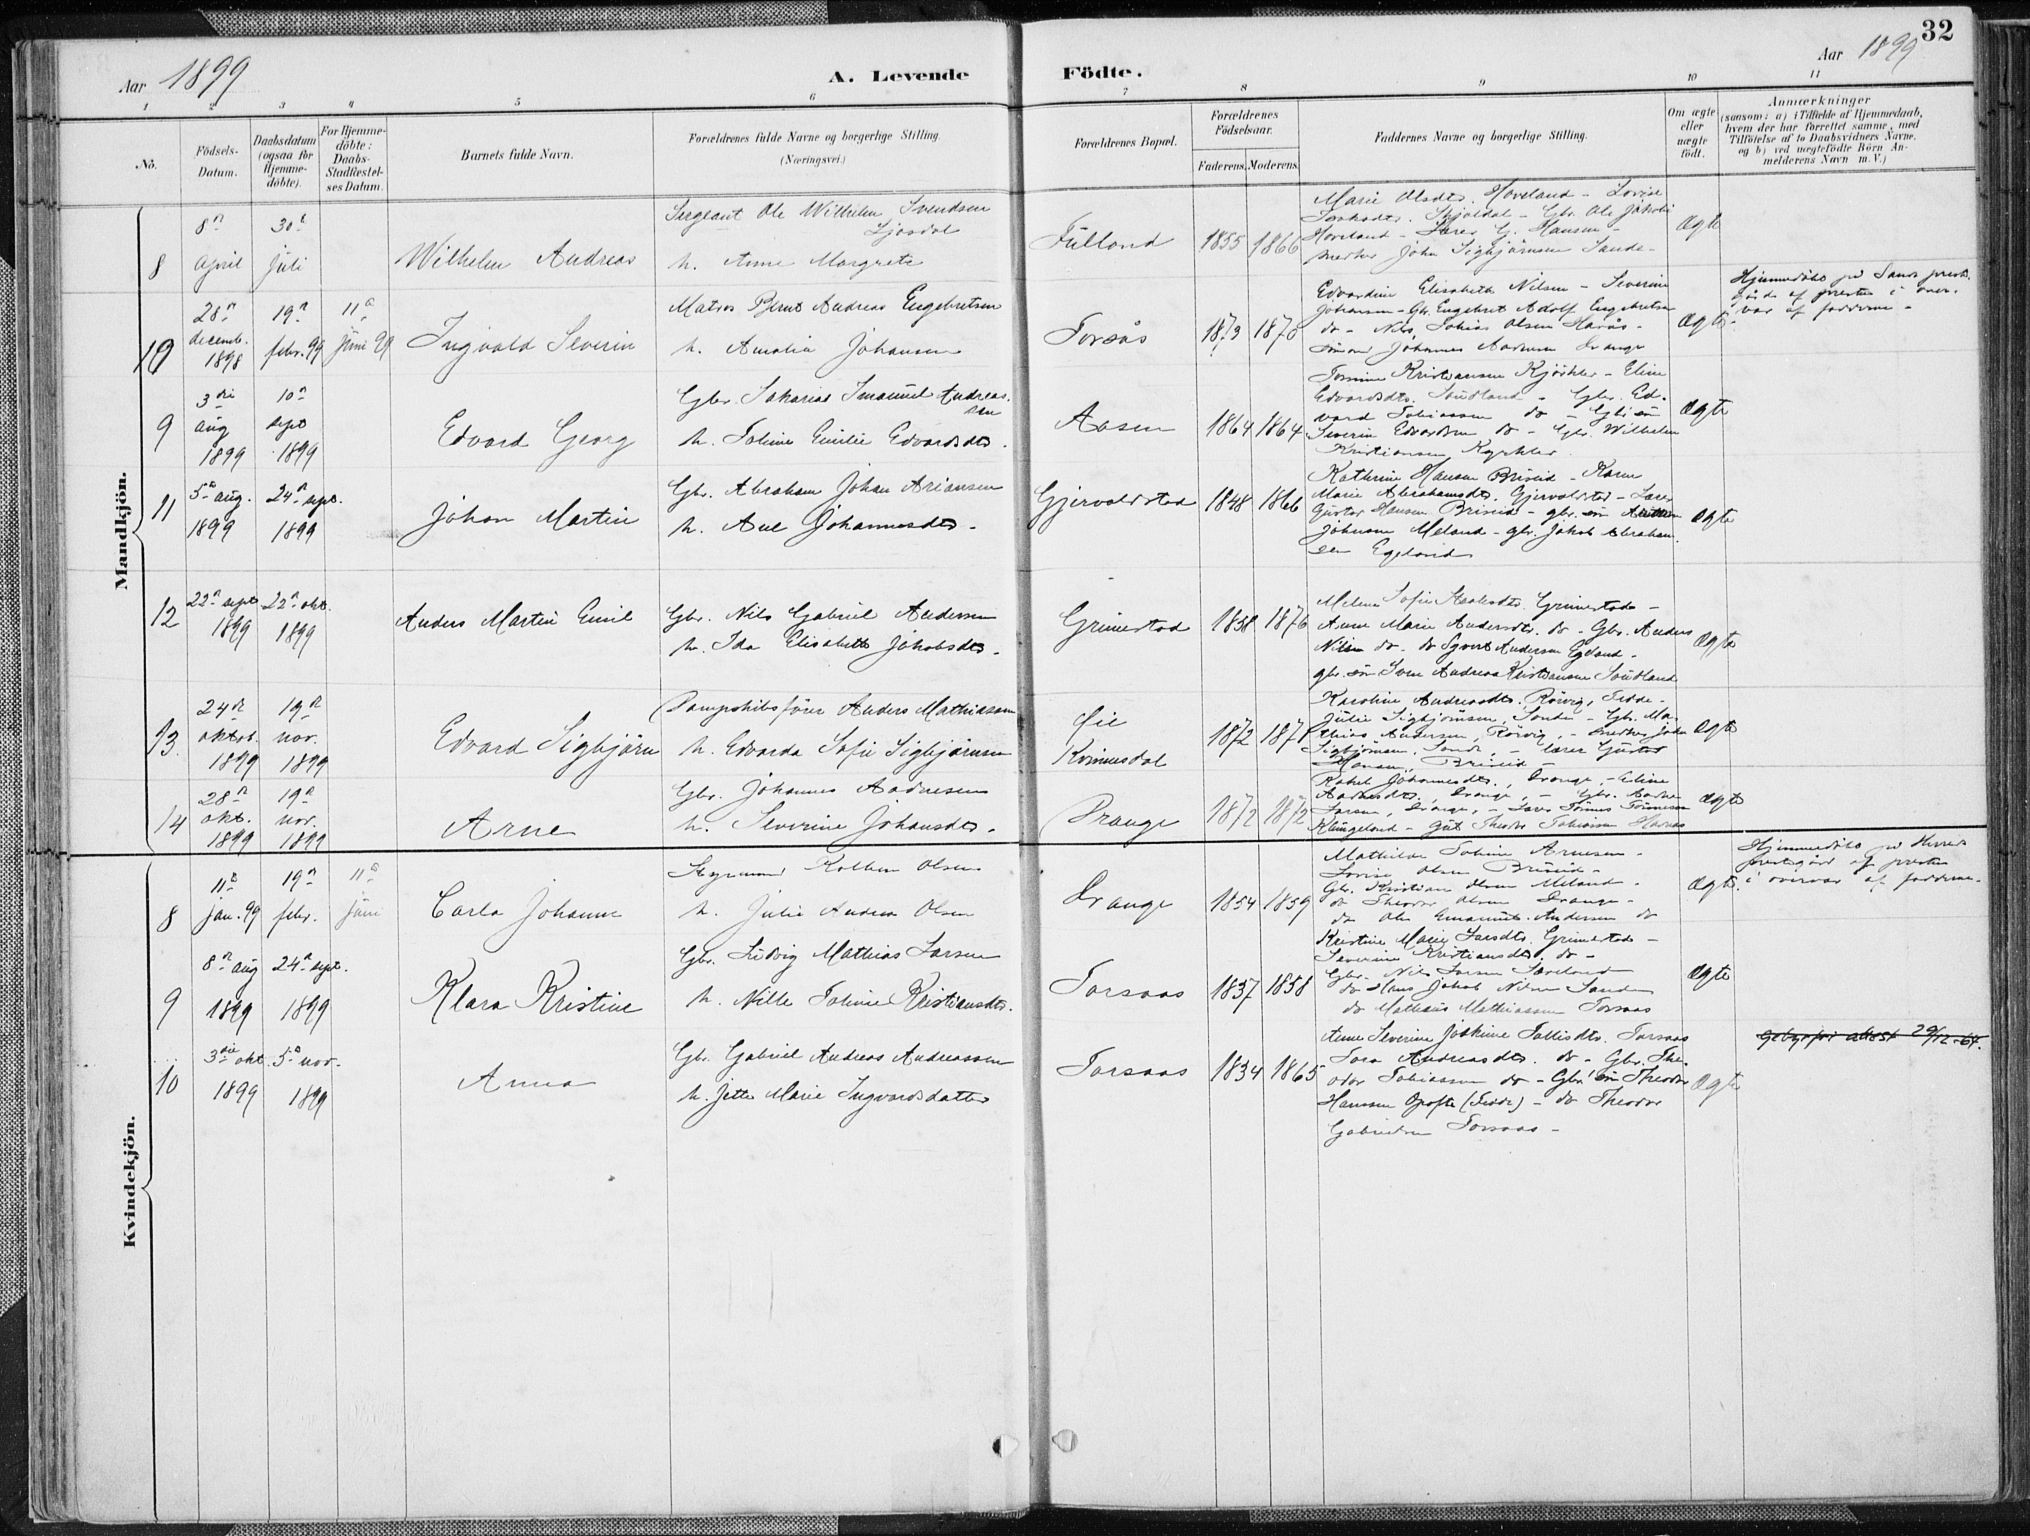 32
Aar 1899
A. Levende Födte.
Aar 1899
1 2 3 4 5 6 7 8 9 10 11
No.
Födsels-
Datum.
Daabsdatum
(ogsaa for
Hjemme-
döbte).
For Hjemme-
döbte:
Daabs-
Stadfæstel-
ses Datum.
Barnets fulde Navn.
Forældrenes fulde Navne og borgerlige Stilling.
(Næringsvei.)
Forældrenes Bopæl.
Forældrenes
Födselsaar.
Faderens. Moderens.
Faddernes Navne og borgerlige Stilling.
Om ægte
eller
uægte
födt.
Anmærkninger
(saasom: a) i Tilfælde af Hjemmedaab,
hvem der har forrettet samme, med
Tilföielse af to Daabsvidners Navne.
og b) ved uægtefödte Börn An-
melderens Navn m. V.)
Mandkjön.
8
8n
April
30t
Juli
Wilhelm Andreas
Sergeant Ole Wilhelm Svendsen
Ljosdal
h. Anne Margrete
1855 1866
Marie Olsdtr. Hoveland - Lovise
Skjoldal - Gbr. Ole Jakobs
Hoveland - Lærer G. Hansen -
John Sigbjörnsen Sande -
Ægte
10
28n
decemb.
1898
19n
febr. 99
11n
Juni 99
Ingvald Severin
Matros Bernt Andreas Engebretsen
h. Amalia Johansen
Torsås
1873 1870
Edvardine Elisabeth Nilsen - Severine
Johansen - Gbr. Engebret Adolf Engebretsen
do - Nils Tobias Olsen Havås -
Johannes Aadnesen Drange
Ægte
Hjemmedöbt på Sands preste-
gård af presten i over-
vær af fadderne -
9
3die
aug
1899
10n
sept
1899
Edvard Georg
Gbr. Sakarias Imanuel Andreas-
sen
h. Toline Emilie Edvardsdtr.
Aasen
1864 1864
Kristiansen - Eline
Edvardsdtr. Soudland - Gbr. Ed-
vard Tobiassen do - Gbr. sön
Severin Edvardsen do - Gbr. Wilhelm
Kristiansen
Ægte
11
5n aug.
1899
24n sept.
1899
Johan Martin
Gbr. Abraham Johan Ariansen
h. Ane Johannesdtr.
Gjervoldstad
1848 1866
Kathrine Hansen Briseid - Karen
Marie Abrahamsdtr. Gjervoldstad - Lærer
Gustav Hansen Briseid - gbr. sön
Johnsen Meland - gbr. Jakob Abraham-
sen Egeland
Ægte
12
22n sept
1899
22n okt.
1899
Anders Martin Emil
Gbr. Nils Gabriel Andersen
h. Ida Elisabeth Jakobsdtr.
Grimestad
1858 1876
Sofie Grimestad -
Anne Marie Andersdtr. do - Gbr. Anders
Nilsen do - do Syvert Andersen Egeland -
gbr. sön Sven Andreas Kristiansen Soudland
Ægte
13.
24de
oktob.
1899
19n
nov.
1899
Edvard Sigbjörn
Dampskibsförer Anders Mathiassen
h. Edvarda Sofie Sigbjörnsen
Kvinesdal
1872 1871
Karoline Andreasdtr. Rörvig, Fedde -
Julie Sigbjörnsen, Sande - Gbr. Ma-
thias Andersen, Rörvig, - John
Sigbjörnsen, Sande, - lærer Gustav
Hansen, Briseid -
Ægte
14
28n
okt.
1899
19n
nov.
1899
Arne
Gbr. Johannes Aadnesen
h. Severine Johansdtr.
Drange
1872 1872
Rakel Johannesdtr., Drange, - Eline
Aadnesdtr. Drange, - Gbr. Aadne
Larsen, Drange, - Lars Tönnes Tönnesen
Klungeland - Gut Theodor Tobiassen Havaas
Ægte
Kvindekjön.
8
11n
jan. 99
19n
febr.
11n
Juni
Carla Johanne
Olsen
h. Julie Andrea Olsen
Drange
1854 1859
Mathilde Toline Arnesen -
Lovise Olsen Briseid -
Gbr. Kristian Olsen Meland -
do Theodor Olsen Drange -
do Ole Emanuel Andersen do
Ægte.
Hjemmedöbt på
prestegård af presten
i overvær af fadderne -
9
8n aug
1899
24n sept.
1899
Klara Kristine
Gbr. Ludvig Mathias Larsen
h. Nille Toline Kristiansdtr.
Torsaas
1857 1858
Kristine Marie Larsdtr. Grimestad -
Severine Kristiansdtr. do -
Gbr. Nils Larsen
do Hans Jakob Nilsen Sande
do Mathias Mathiassen Torsaas
Ægte
10
3die okt
1899
5n nov.
1899
Anna
Gbr. Gabriel Andreas Andreassen
h. Jette Marie Ingvardsdatter
Torsaas
1834 1865
Anne Severine Joakime Torsaas
Tora Andreasdtr. do - Gbr. The-
odor Tobiassen do - Gbr. sön Theodor
Hanssen Opofte (Fedde) - do Theodor
Gabrielsen Torsaas -
Ægte
Gebyrfri attest 29/12-64.